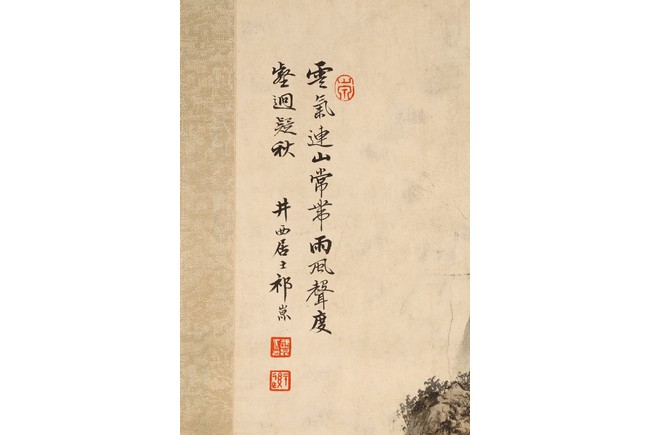 雲氣連山常帶雨風聲度
壑迥疑秋
井西居士祁崑